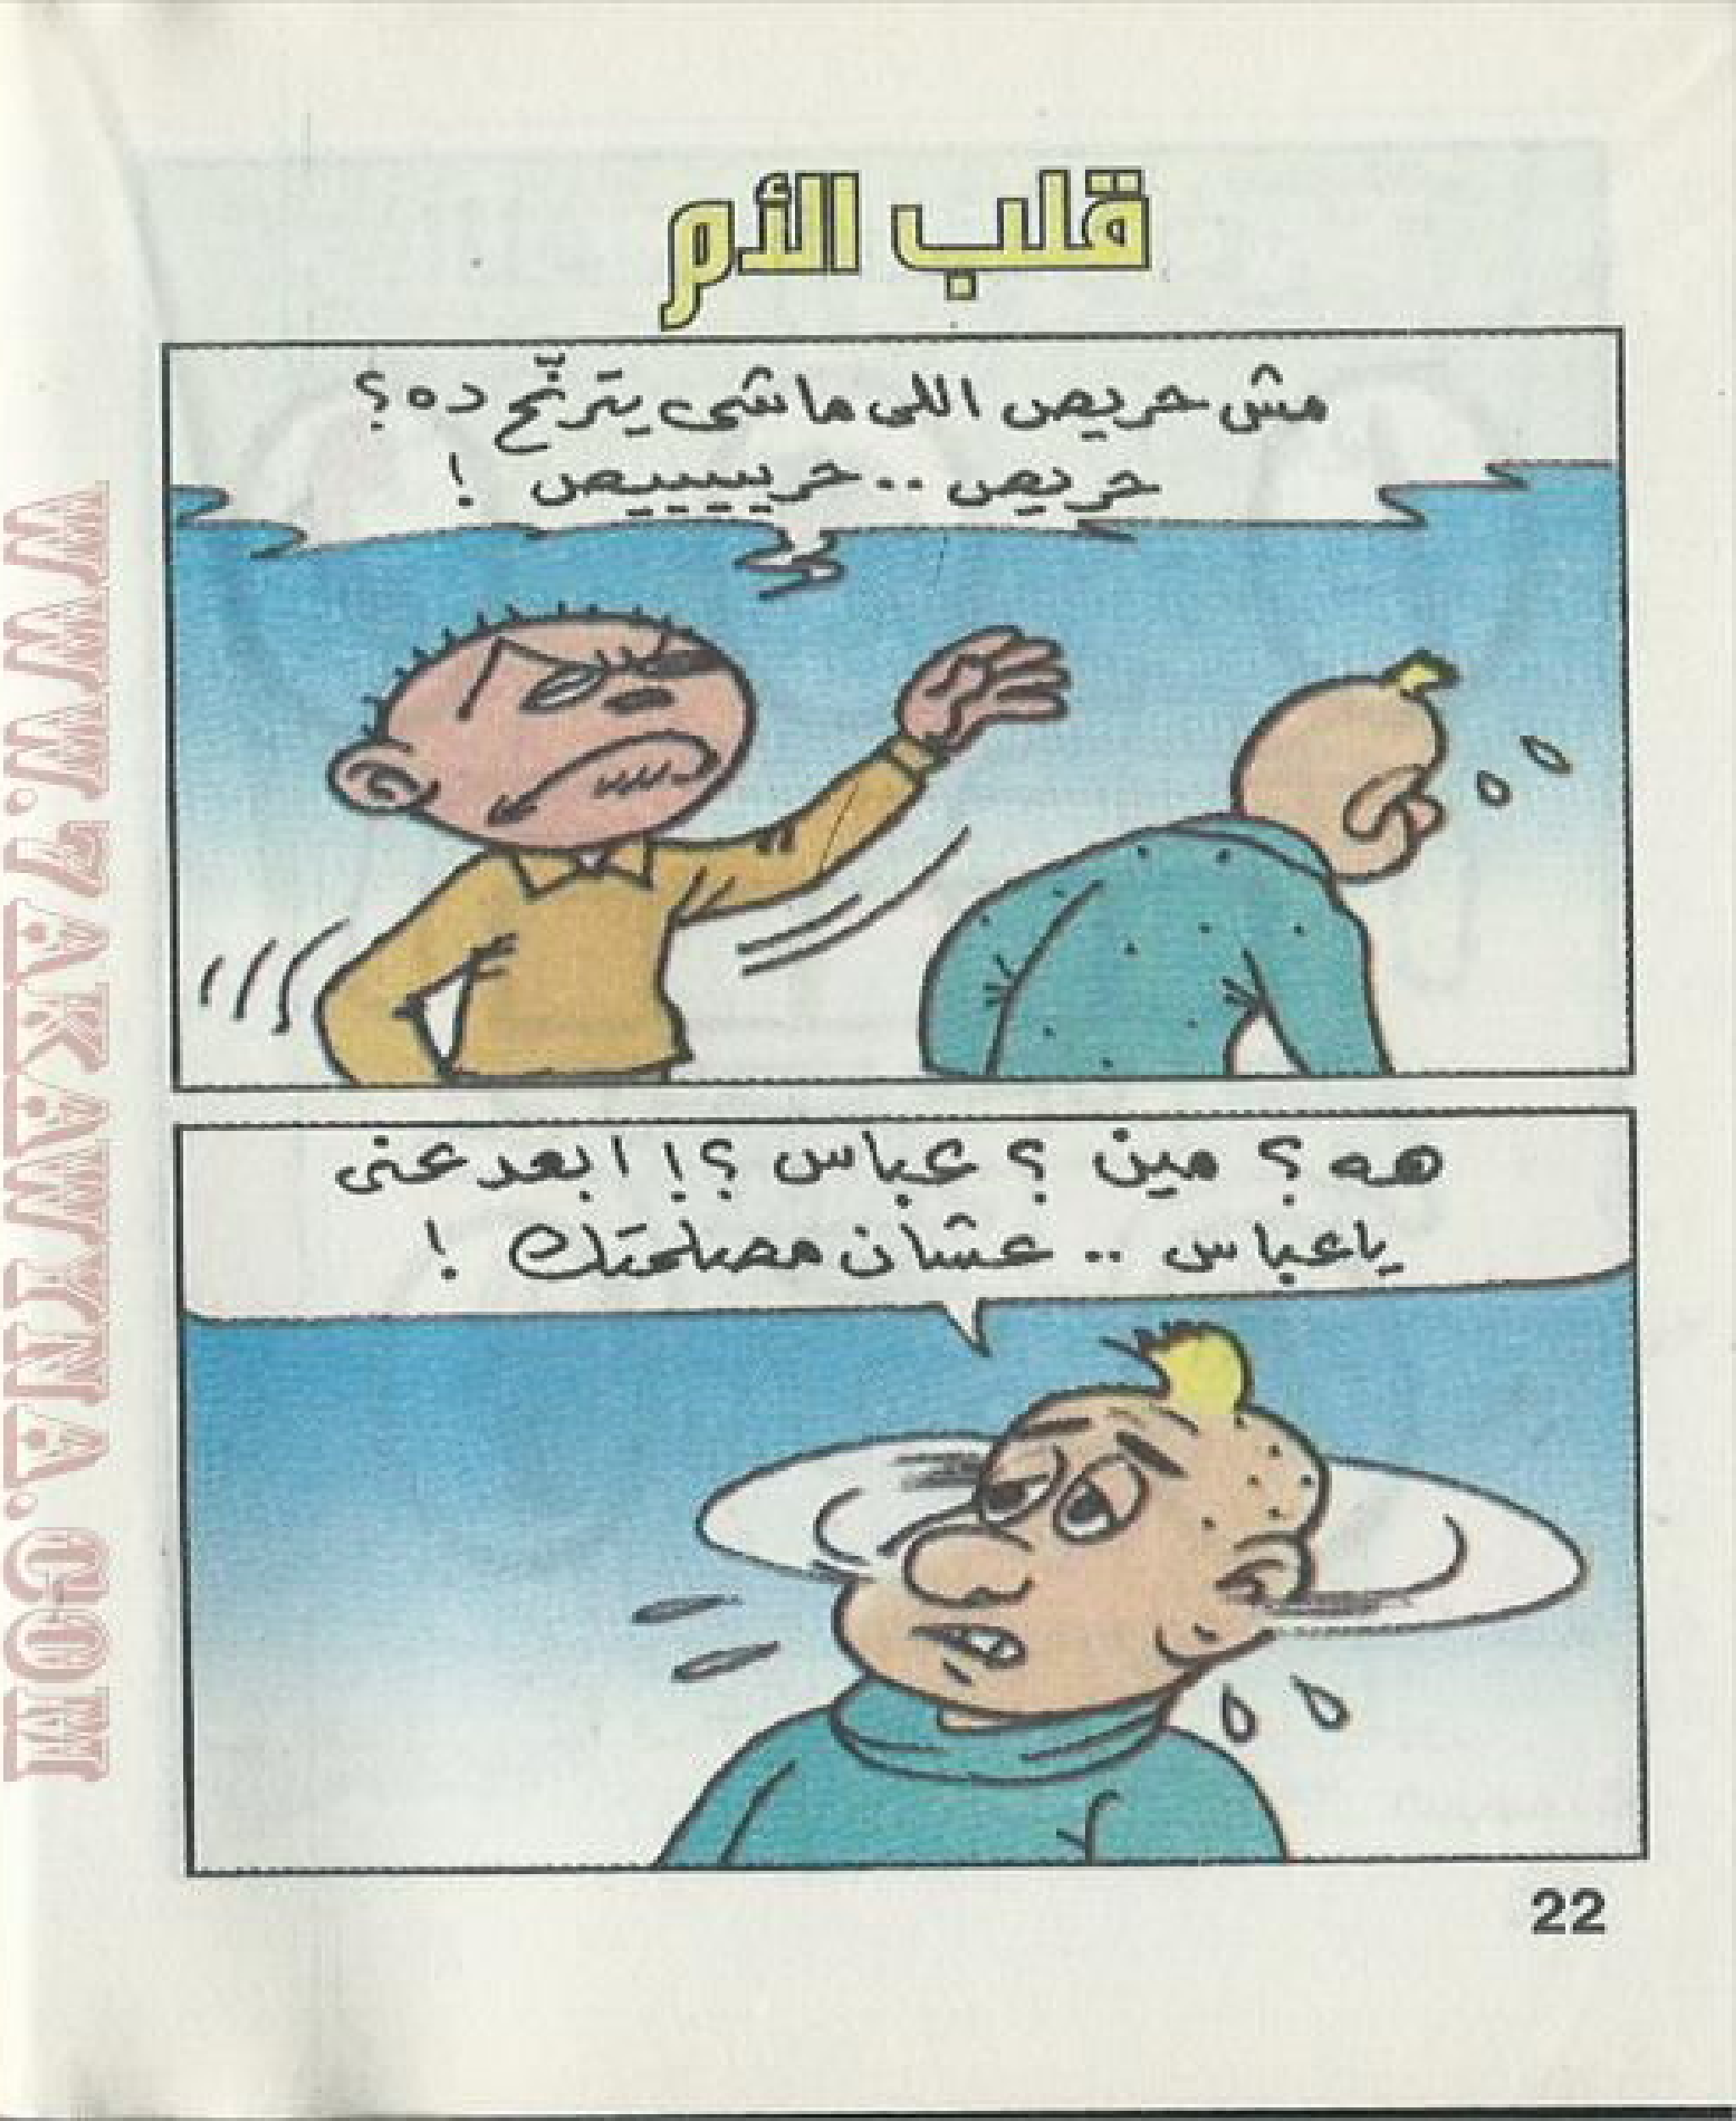 قلب الأم
مش حريص اللى ماشى يترنّح ده؟
حريص .. حرييييييص !
هه؟ مين؟ عباس؟! ابعد عنى
ياعباس .. عشان مصلحتك !
22
WWW.7AKAWATNA.COM